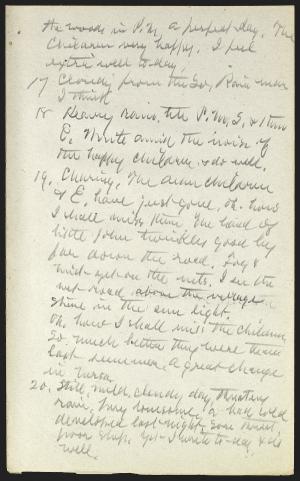 the woods in P.M. a perfect day. The
children very happy. I feel
extra well to-day.
17 Cloudy from the S.W. Rain near
I think.
18 Heavy rains till P.M. S. & then
E. Write amid the noise of
the happy children & do well.
19. Clearing. The dear children
& E. have just gone, oh. how
I shall miss them. The hand of
little John twinkles good by
far down the road. Fog &
mist yet on the mts. I see the
wet road above the village
shine in the sun light.
Oh, how I shall miss the children,
So much better they were than
last summer, a great change
in Ursula.
20. Still, mild, cloudy day, threatens
rain, Very lonesome, a bad cold
developed last night, sore throat,
poor sleep. Yet I write to-day, & do
well.